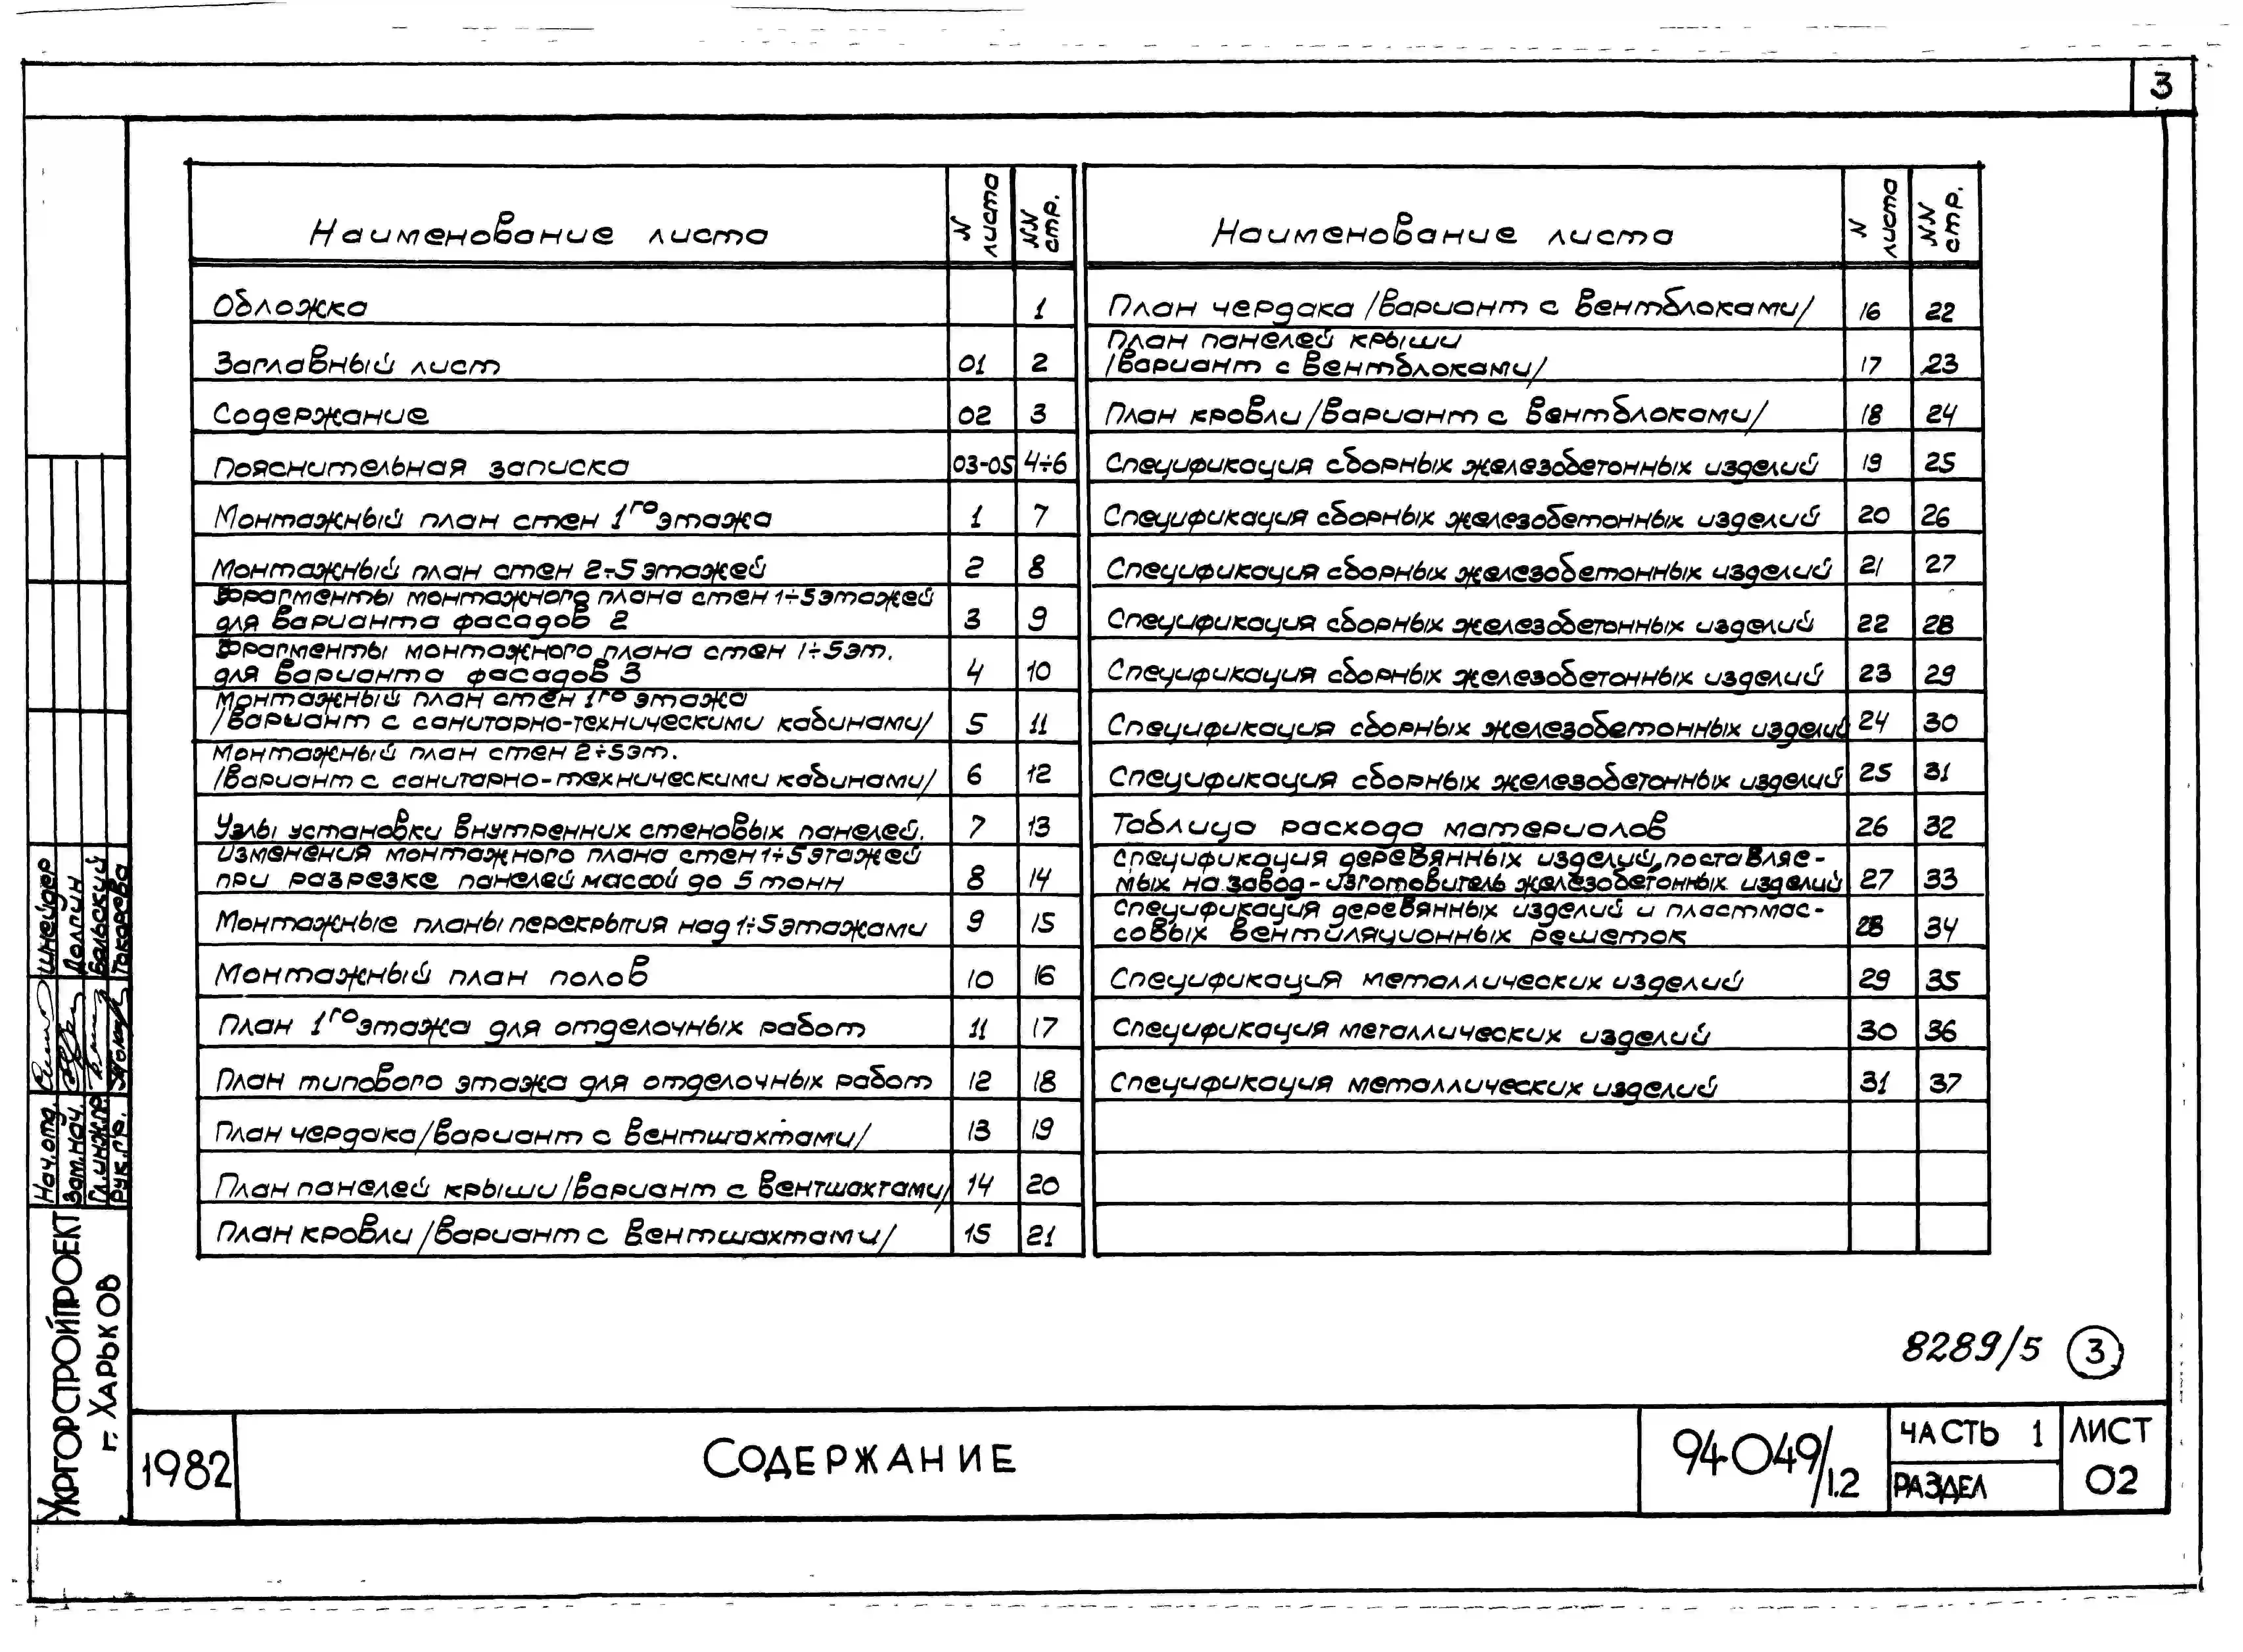 3
Наименование листа
N листа
NN стр.
Обложка 1
Заглавный лист 01 2
Содержание 02 3
Пояснительная записка 03-05 4÷6
Монтажный план стен 1го этажа 1 7
Монтажный план стен 2÷5 этажей 2 8
Фрагменты монтажного плана стен 1÷5 этажей
для варианта фасадов 2 3 9
Фрагменты монтажного плана стен 1÷5 эт.
для варианта фасадов 3 4 10
Монтажный план стен 1го этажа
/вариант с санитарно-техническими кабинами/ 5 11
Монтажный план стен 2÷5 эт.
/вариант с санитарно-техническими кабинами/ 6 12
Узлы установки внутренних стеновых панелей. 7 13
Изменения монтажного плана стен 1÷5 этажей
при разрезке панелей массой до 5 тонн 8 14
Монтажные планы перекрытия над 1÷5 этажами 9 15
Монтажный план полов 10 16
План 1го этажа для отделочных работ 11 17
План типового этажа для отделочных работ 12 18
План чердака /вариант с вентшахтами/ 13 19
План панелей крыши /вариант с вентшахтами/ 14 20
План кровли /вариант с вентшахтами/ 15 21
Наименование листа
N листа
NN стр.
План чердака /вариант с вентблоками/ 16 22
План панелей крыши
/вариант с вентблоками/ 17 23
План кровли /вариант с вентблоками/ 18 24
Спецификация сборных железобетонных изделий 19 25
Спецификация сборных железобетонных изделий 20 26
Спецификация сборных железобетонных изделий 21 27
Спецификация сборных железобетонных изделий 22 28
Спецификация сборных железобетонных изделий 23 29
Спецификация сборных железобетонных изделий 24 30
Спецификация сборных железобетонных изделий 25 31
Таблица расхода материалов 26 32
Спецификация деревянных изделий, поставляе-
мых на завод-изготовитель железобетонных изделий 27 33
Спецификация деревянных изделий и пластмас-
совых вентиляционных решеток 28 34
Спецификация металлических изделий 29 35
Спецификация металлических изделий 30 36
Спецификация металлических изделий 31 37
Нач.отд. Шнейдер
Зам.нач. Долгин
Гл.инж.пр. Вальский
Рук.гр. Токарева
Укргорстройпроект
г. Харьков
8289/5 3
1982
Содержание
94-049/1.2
часть 1
раздел
лист
02